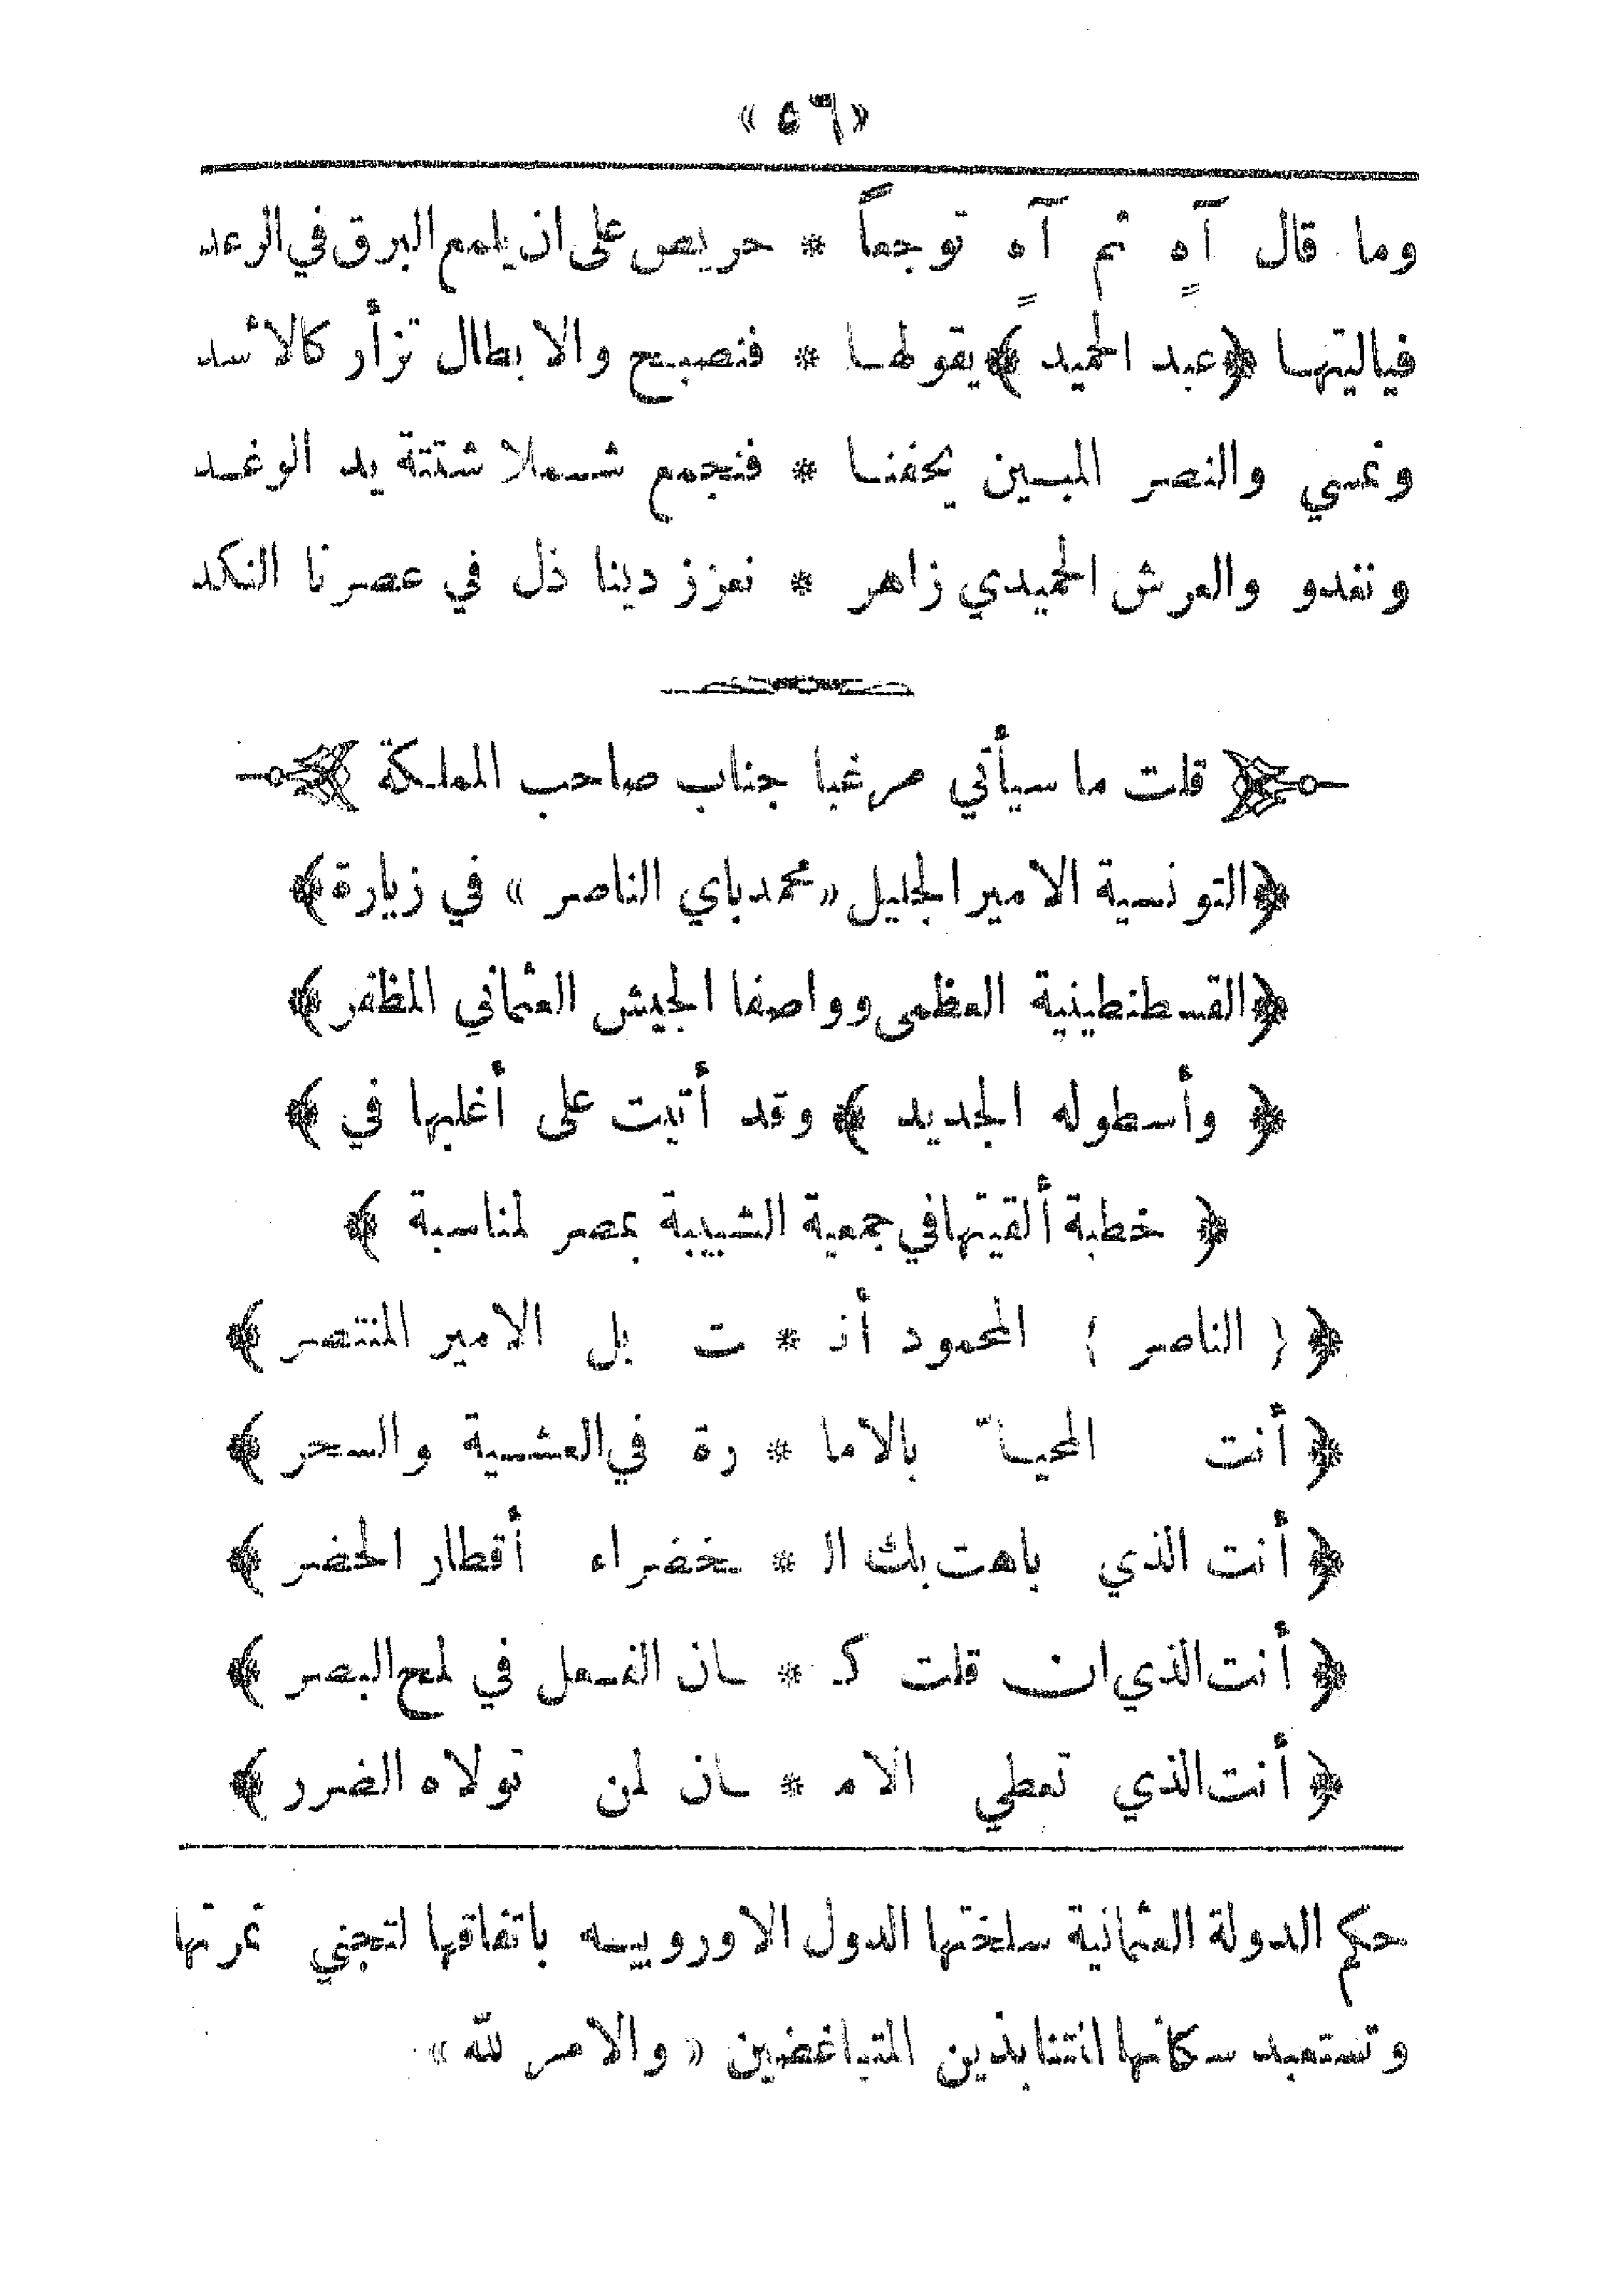 «٥٦»
وما قال آهٍ ثم آهٍ توجعاً * حريص على ان يلمع البرق في الرعد
فياليتها ﴿عبد الحميد﴾ يقولها * فنصبح والابطال تزأر كالأسد
ونمسي والنصر المبين يحفنا * فنجمع شملا شتتة يد الوغد
ونغدو والعرش الحميدي زاهر * نعزز دينا ذل في عصرنا النكد
قلت ما سيأتي مرغبا جناب صاحب المملكة
﴿التونسية الامير الجليل «محمد باي الناصر» في زيارة﴾
﴿القسطنطينية العظمى وواصفا الجيش العثماني المظفر﴾
﴿وأسطوله الجديد﴾ وقد أتيت على أغلبها في﴾
﴿خطبة ألقيتها في جمعية الشبيبة بمصر لمناسبة﴾
﴿{الناصر} المحمود أنـ * ـت بل الامير المنتصر﴾
﴿أنت المحيــّا بالاما * رة في العشية والسحر﴾
﴿أنت الذي باهت بك الـ * ـخضراء أقطار الحضر﴾
﴿أنت الذي ان قلت كـ * ـان الفعل في لمح البصر﴾
﴿أنت الذي تعطي الامـ * ـان لمن تولاه الضرر﴾
حكم الدولة العثمانية سلختها الدول الاوروبيه باتفاقها لتجني ثمرتها
وتستعبد سكانها المتنابذين المتباغضين «والامر لله»